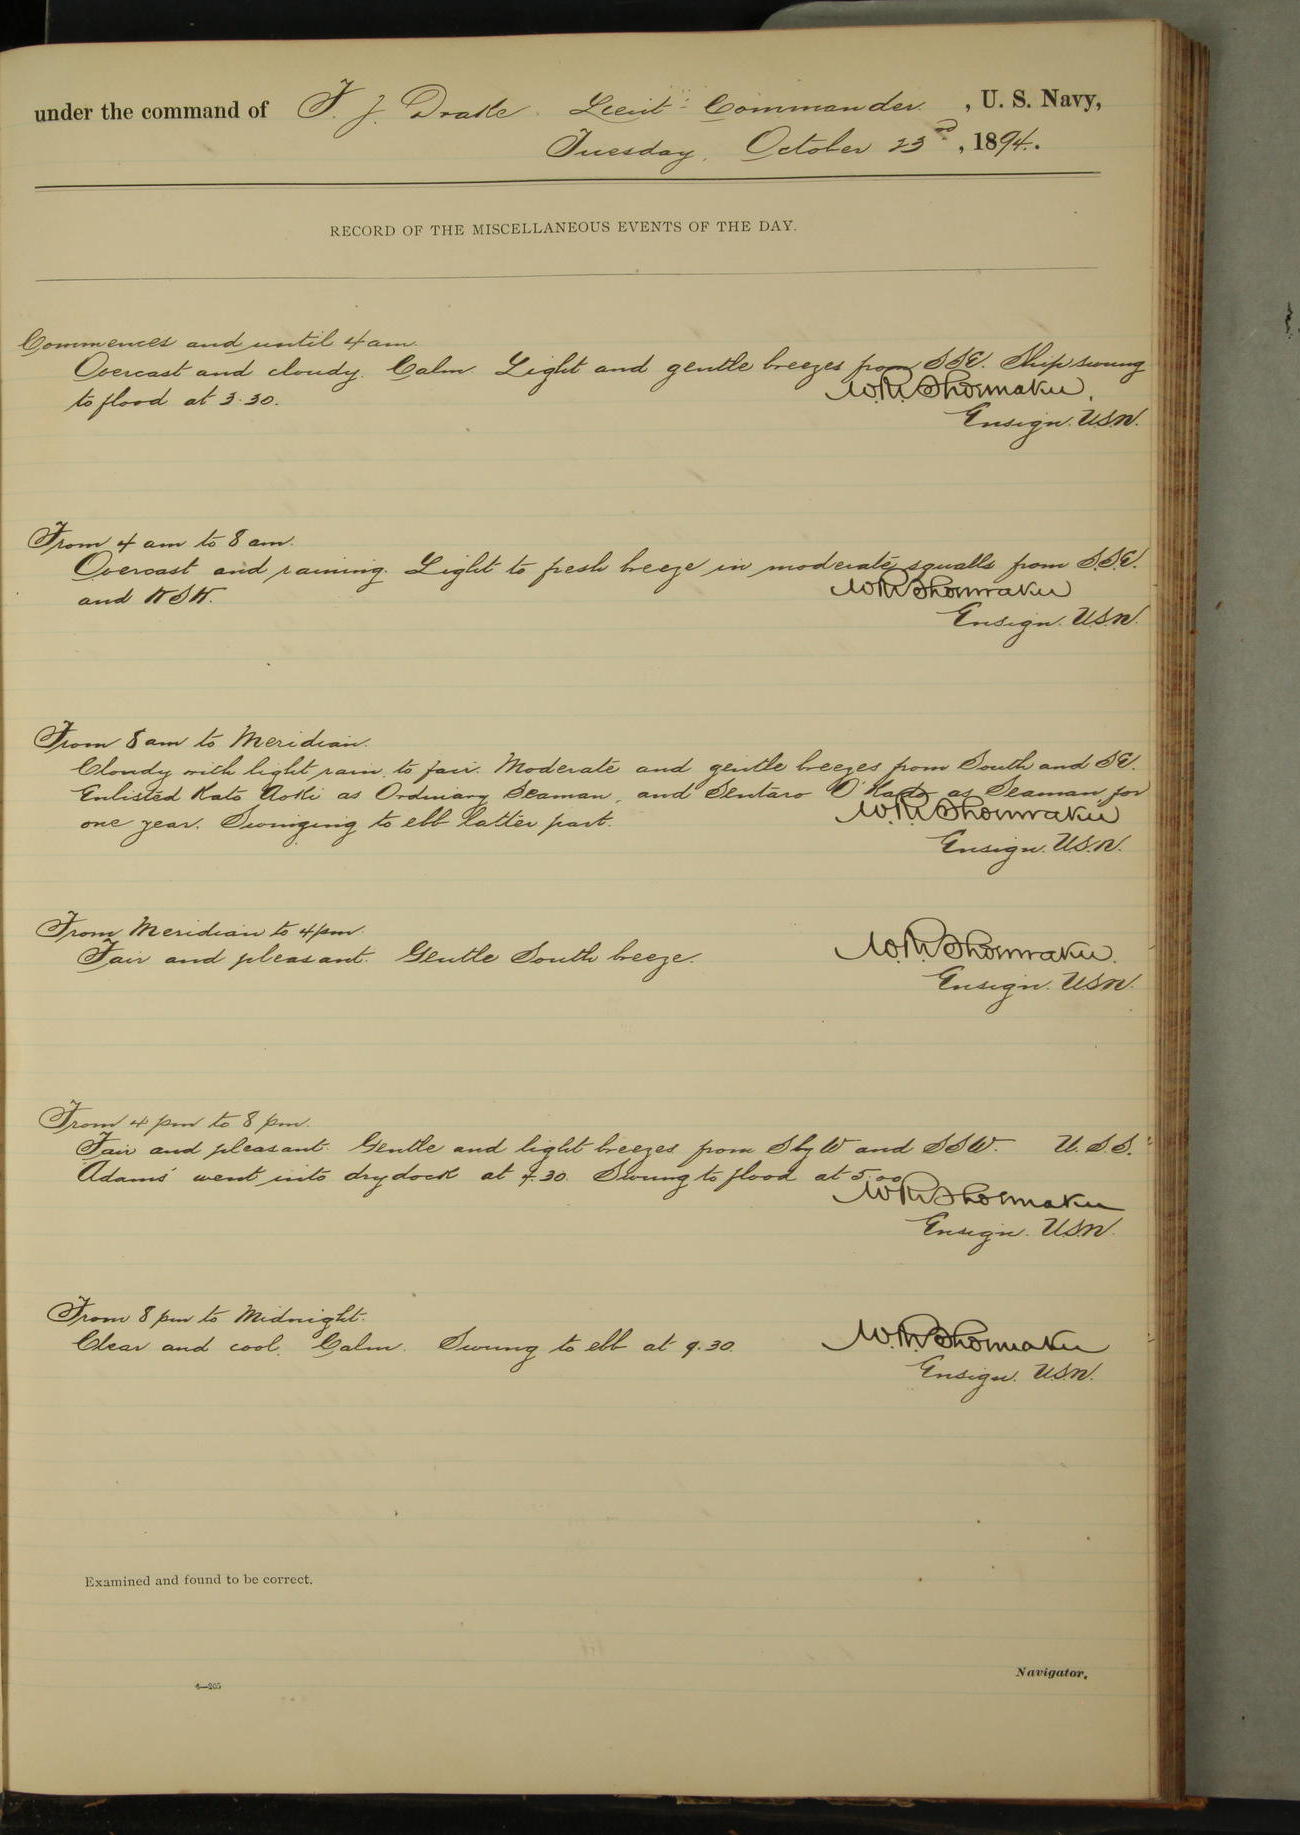 under the command of F. J. Drake. Lieut: Commander, U. S. Navy,
Tuesday, October 23rd, 1894.
RECORD OF THE MISCELLANEOUS EVENTS OF THE DAY.
Commences and until 4 am.
Overcast and cloudy. Calm. Light and gentle breezes from SSE. Ship swung
to flood at 3.30.
W.R. Shoemaker.
Ensign. U.S.N.
From 4 am to 8 am.
Overcast and raining. Light to fresh breeze in moderate squalls from S.S.E.
and WSW.
W.R. Shoemaker
Ensign. U.S.N.
From 8 am to Meridian.
Cloudy with light rain, to fair. Moderate and gentle breezes from South and SE.
Enlisted Kato Aoki as Ordinary Seaman, and Sentaro O'Kado as Seaman for
one year. Swinging to ebb latter part.
W.R. Shoemaker
Ensign. U.S.N.
From Meridian to 4 pm.
Fair and pleasant. Gentle South breeze.
W.R. Shoemaker.
Ensign. U.S.N.
From 4 pm to 8 pm.
Fair and pleasant. Gentle and light breezes from S by W and SSW. U.S.S. "
Adams" went into dry dock at 4.30. Swung to flood at 5.00
W.R. Shoemaker
Ensign. U.S.N.
From 8 pm to Midnight.
Clear and cool. Calm. Swung to ebb at 9.30.
W.R. Shoemaker
Ensign. U.S.N.
Examined and found to be correct.
Navigator.